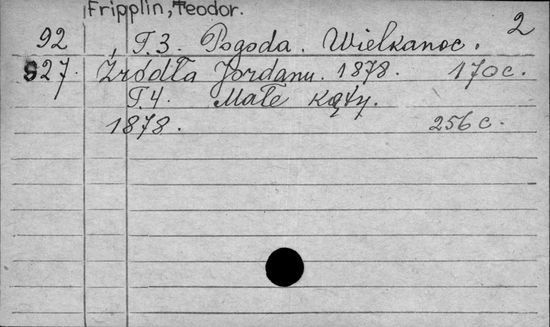 Fripplin, Teodor.
2
92 , T.3. Pogoda. Wielkanoc.
927. Źródła Jordanu. 1878. 170 c.
T.4. Małe kąty.
1878. 256 c.